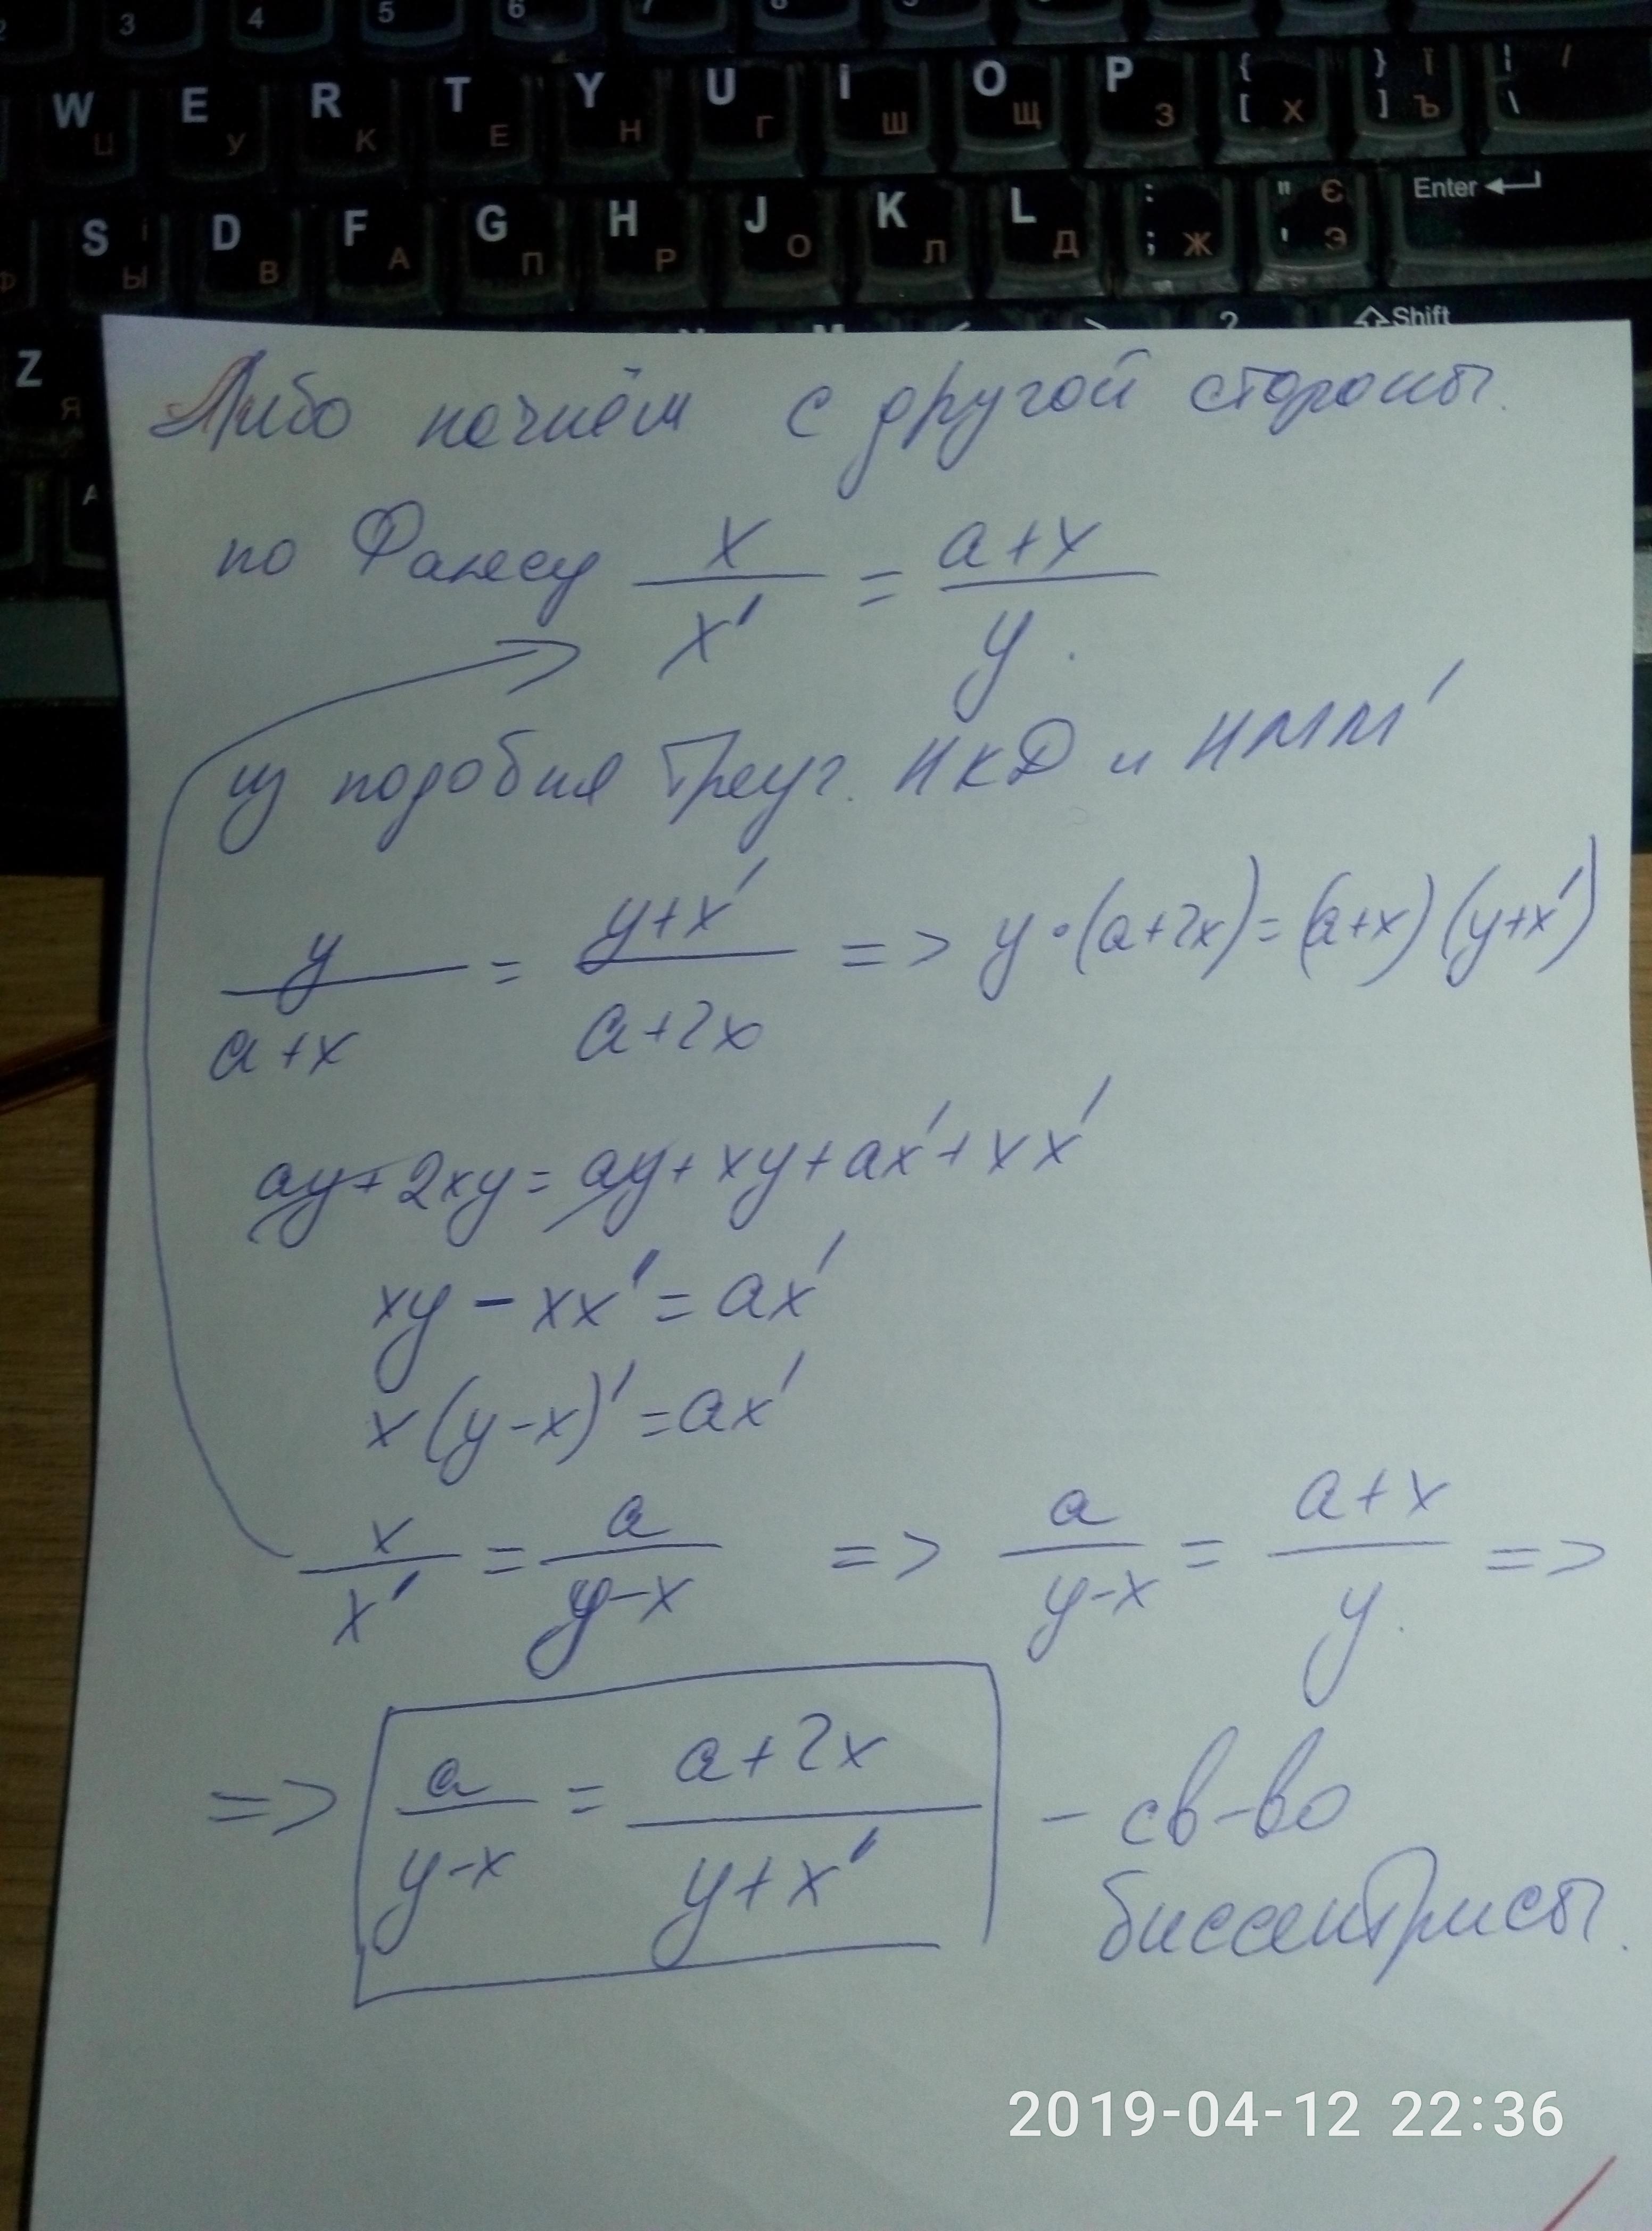 2 3 4 5 6 7 8 9
W Ц E У R К T Е Y Н U Г I Ш O Щ P З { [ Х } ] Ї Ъ | \ /
Ф S І Ы D В F А G П H Р J О K Л L Д : ; Ж " ' Є Э Enter
Z Я M < > ? Shift
A
Либо начнём с другой стороны.
по Фалесу x/x' = a+x/y.
из подобия Треуг. НКД и НММ'
y/a+x = y+x'/a+2x => y·(a+2x)=(a+x)(y+x')
ay+2xy=ay+xy+ax'+xx'
xy-xx'=ax'
x(y-x)'=ax'
x/x' = a/y-x => a/y-x = a+x/y. =>
=> a/y-x = a+2x/y+x' - св-во
биссектрисы.
2019-04-12 22:36